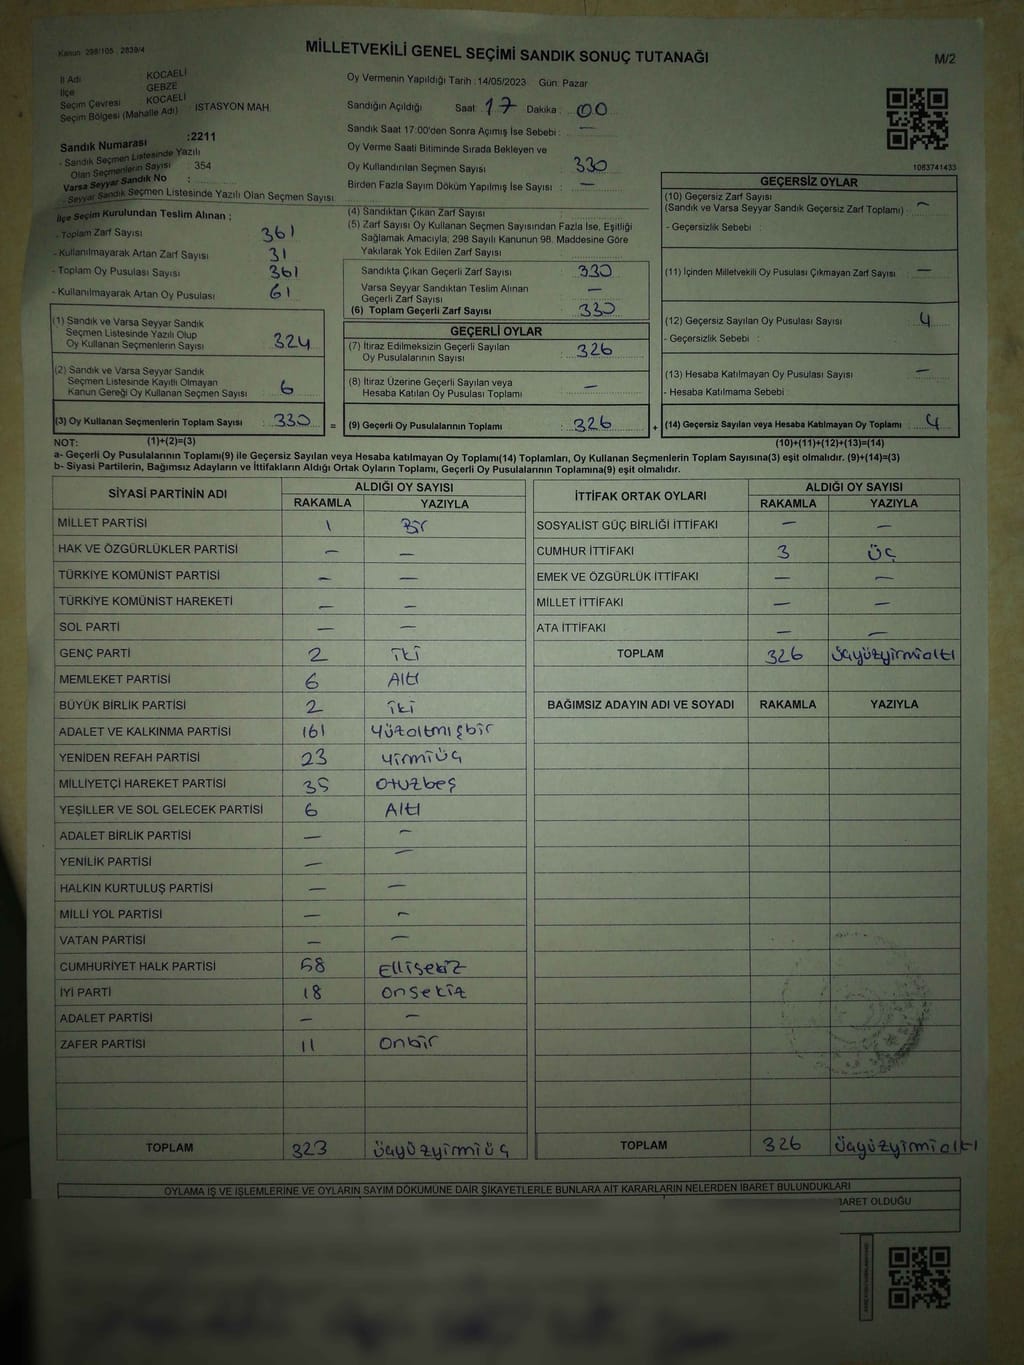 Kanun: 298/105 , 2839/4
MİLLETVEKİLİ GENEL SEÇİMİ SANDIK SONUÇ TUTANAĞI
M/2
İl Adı KOCAELİ
İlçe GEBZE
Seçim Çevresi KOCAELİ
Seçim Bölgesi (Mahalle Adı) : İSTASYON MAH.
Sandık Numarası :2211
- Sandık Seçmen Listesinde Yazılı
Olan Seçmenlerin Sayısı : 354
Varsa Seyyar Sandık No :
- Seyyar Sandık Seçmen Listesinde Yazılı Olan Seçmen Sayısı
Oy Vermenin Yapıldığı Tarih :14/05/2023 Gün: Pazar
Sandığın Açıldığı Saat: 17 Dakika : 00
Sandık Saat 17:00'den Sonra Açımış İse Sebebi : —
Oy Verme Saati Bitiminde Sırada Bekleyen ve
Oy Kullandırılan Seçmen Sayısı : 330
Birden Fazla Sayım Döküm Yapılmış İse Sayısı : —
1083741433
İlçe Seçim Kurulundan Teslim Alınan ;
- Toplam Zarf Sayısı : 361
- Kullanılmayarak Artan Zarf Sayısı : 31
- Toplam Oy Pusulası Sayısı : 361
- Kullanılmayarak Artan Oy Pusulası : 61
(1) Sandık ve Varsa Seyyar Sandık
Seçmen Listesinde Yazılı Olup
Oy Kullanan Seçmenlerin Sayısı : 324
(2) Sandık ve Varsa Seyyar Sandık
Seçmen Listesinde Kayıtlı Olmayan
Kanun Gereği Oy Kullanan Seçmen Sayısı : 6
(3) Oy Kullanan Seçmenlerin Toplam Sayısı : 330 =
(4) Sandıktan Çıkan Zarf Sayısı :
(5) Zarf Sayısı Oy Kullanan Seçmen Sayısından Fazla İse, Eşitliği
Sağlamak Amacıyla, 298 Sayılı Kanunun 98. Maddesine Göre
Yakılarak Yok Edilen Zarf Sayısı :
Sandıkta Çıkan Geçerli Zarf Sayısı : 330
Varsa Seyyar Sandıktan Teslim Alınan
Geçerli Zarf Sayısı : —
(6) Toplam Geçerli Zarf Sayısı : 330
GEÇERLİ OYLAR
(7) İtiraz Edilmeksizin Geçerli Sayılan
Oy Pusulalarının Sayısı : 326
(8) İtiraz Üzerine Geçerli Sayılan veya
Hesaba Katılan Oy Pusulası Toplamı : —
(9) Geçerli Oy Pusulalarının Toplamı : 326 +
GEÇERSİZ OYLAR
(10) Geçersiz Zarf Sayısı
(Sandık ve Varsa Seyyar Sandık Geçersiz Zarf Toplamı) : —
- Geçersizlik Sebebi :
(11) İçinden Milletvekili Oy Pusulası Çıkmayan Zarf Sayısı : —
(12) Geçersiz Sayılan Oy Pusulası Sayısı : 4
- Geçersizlik Sebebi :
(13) Hesaba Katılmayan Oy Pusulası Sayısı : —
- Hesaba Katılmama Sebebi :
(14) Geçersiz Sayılan veya Hesaba Katılmayan Oy Toplamı : 4
NOT: (1)+(2)=(3) (10)+(11)+(12)+(13)=(14)
a- Geçerli Oy Pusulalarının Toplamı(9) ile Geçersiz Sayılan veya Hesaba katılmayan Oy Toplamı(14) Toplamları, Oy Kullanan Seçmenlerin Toplam Sayısına(3) eşit olmalıdır. (9)+(14)=(3)
b- Siyasi Partilerin, Bağımsız Adayların ve İttifakların Aldığı Ortak Oyların Toplamı, Geçerli Oy Pusulalarının Toplamına(9) eşit olmalıdır.
SİYASİ PARTİNİN ADI ALDIĞI OY SAYISI
RAKAMLA YAZIYLA
MİLLET PARTİSİ 1 Bir
HAK VE ÖZGÜRLÜKLER PARTİSİ — —
TÜRKİYE KOMÜNİST PARTİSİ — —
TÜRKİYE KOMÜNİST HAREKETİ — —
SOL PARTİ — —
GENÇ PARTİ 2 İki
MEMLEKET PARTİSİ 6 Altı
BÜYÜK BİRLİK PARTİSİ 2 İki
ADALET VE KALKINMA PARTİSİ 161 Yüzaltmışbir
YENİDEN REFAH PARTİSİ 23 Yirmiüç
MİLLİYETÇİ HAREKET PARTİSİ 35 Otuzbeş
YEŞİLLER VE SOL GELECEK PARTİSİ 6 Altı
ADALET BİRLİK PARTİSİ — —
YENİLİK PARTİSİ — —
HALKIN KURTULUŞ PARTİSİ — —
MİLLİ YOL PARTİSİ — —
VATAN PARTİSİ — —
CUMHURİYET HALK PARTİSİ 58 Ellisekiz
İYİ PARTİ 18 Onsekiz
ADALET PARTİSİ — —
ZAFER PARTİSİ 11 Onbir
TOPLAM 323 üçyüzyirmiüç
İTTİFAK ORTAK OYLARI ALDIĞI OY SAYISI
RAKAMLA YAZIYLA
SOSYALİST GÜÇ BİRLİĞİ İTTİFAKI — —
CUMHUR İTTİFAKI 3 üç
EMEK VE ÖZGÜRLÜK İTTİFAKI — —
MİLLET İTTİFAKI — —
ATA İTTİFAKI — —
TOPLAM 326 üçyüzyirmialtı
BAĞIMSIZ ADAYIN ADI VE SOYADI RAKAMLA YAZIYLA
TOPLAM 326 üçyüzyirmialtı
OYLAMA İŞ VE İŞLEMLERİNE VE OYLARIN SAYIM DÖKÜMÜNE DAİR ŞİKAYETLERLE BUNLARA AİT KARARLARIN NELERDEN İBARET BULUNDUKLARI
İBARET OLDUĞU